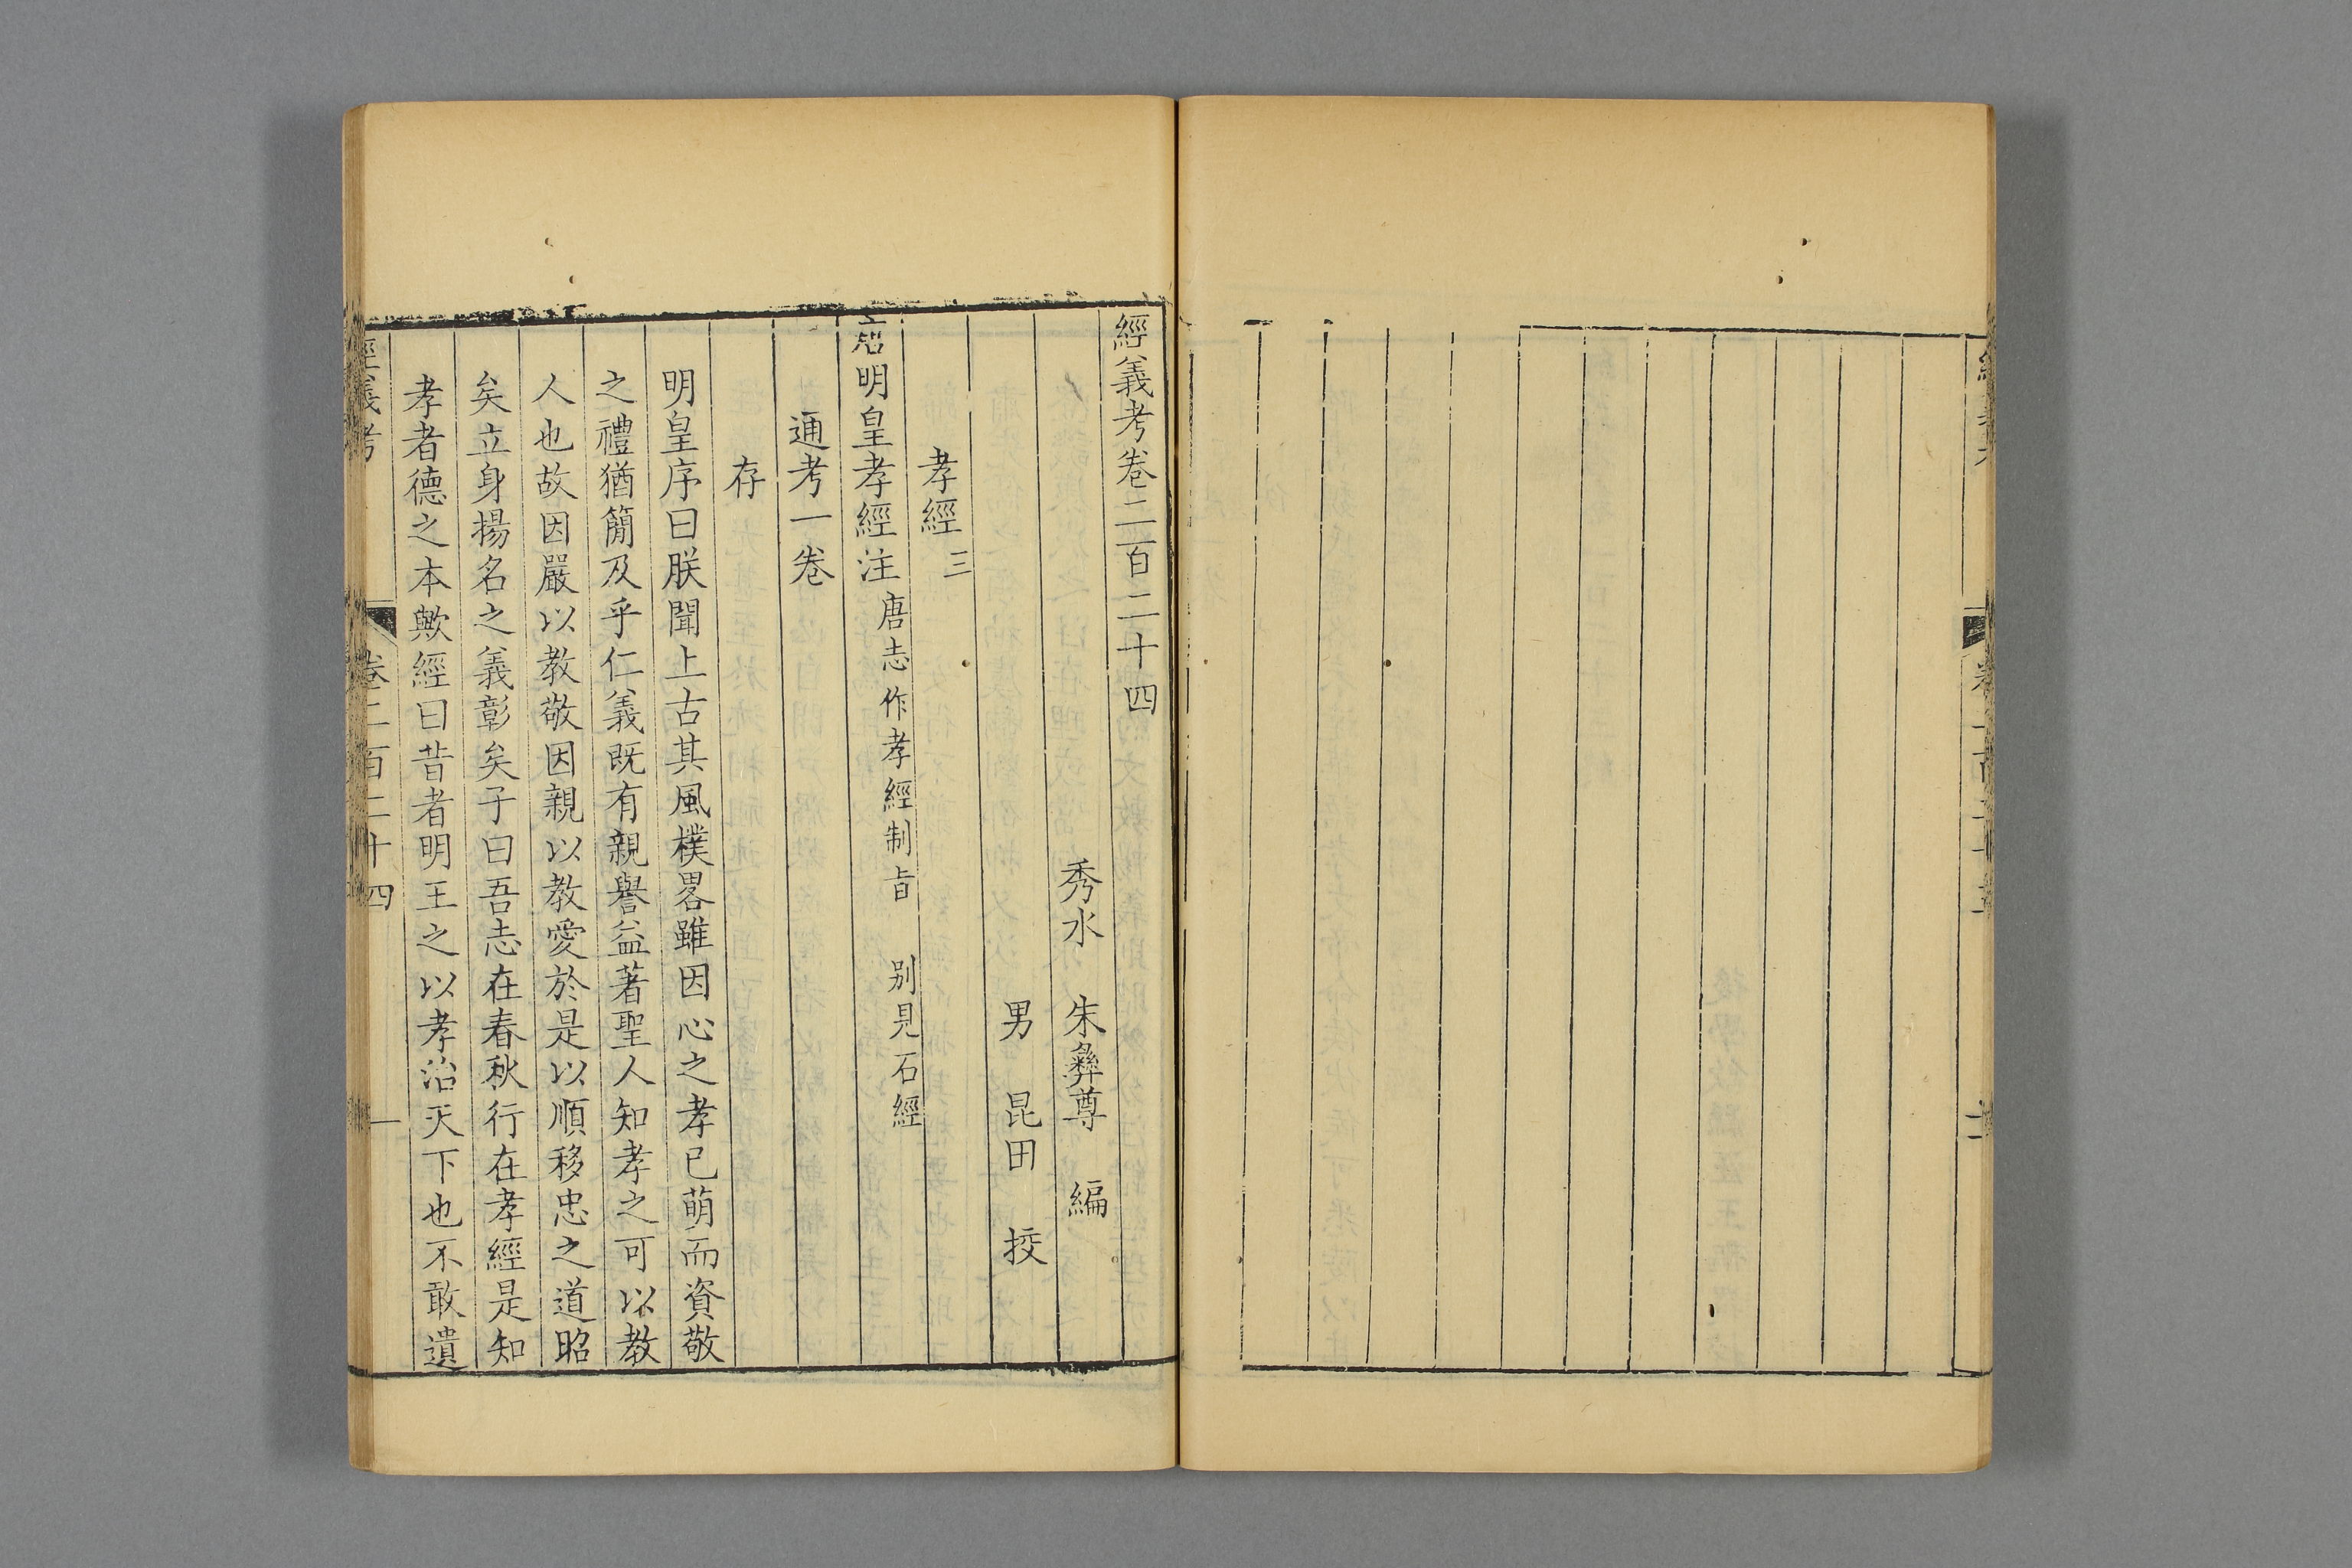 經義考卷二百二十四
秀水 朱彝尊 編
男 昆田 挍
孝經 三
明皇孝經注 唐志作孝經制旨 别見石經
通考一卷
存
明皇序曰朕聞上古其風樸畧雖因心之孝已萌而資敬
之禮猶簡及乎仁義既有親譽益著聖人知孝之可以教
人也故因嚴以教敬因親以教愛於是以順移忠之道昭
矣立身揚名之義彰矣子曰吾志在春秋行在孝經是知
孝者德之本歟經曰昔者明王之以孝治天下也不敢遺
經義考 卷二百二十四 一